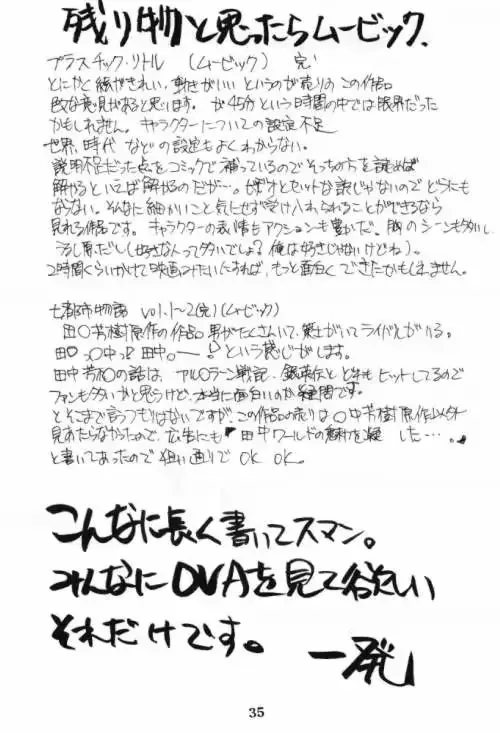 残り物と思ったらムービック.
プラスチック・リトル (ムービック) 完
とにかく絵がきれい、動きがいいというのが売りのこの作品。
な発見があると思います。が45分という時間の中では限界だった
かもしれません。キャラクターについての設定不足
世界、時代などの設定もよくわからない。
説明不足だった点をコミックで補っているのでそっちの方を読めば
解かるといえば解かるのだが…。ビデオとセットな訳じゃないのでどうにも
ならない。そんなに細かいこと気にせず受け入れられることができるなら
見れる作品です。キャラクターの表情もアクションも豊かだ。胸のシーンも多いし、
うるし原だし(好きな人って多いでしょ?俺は好きじゃないけどね)。
2時間くらいかけて映画みたいにすれば、もっと面白くできたかもしれません。
七都市物語 vol.1~2(完)(ムービック)
田○芳樹原作の作品。男がたくさんいて、策士がいてライバルがいる。
田○っ○中っ○田中○ー!という感じがします。
田中芳○の話は、アル○ラーン戦記、銀英伝とどれもヒットしてるので
ファンも多いかと思うけど、本当に面白いのか疑問です。
とそこまで言うつもりはないですが、この作品の売りは○中芳樹原作以外
見あたらなかったので、広告にも「田中ワールドの魅力を凝 した…。」
と書いてあったので狙い通りでOK OK。
こんなに長く書いてスマン。
みんなにOVAを見て欲しい
それだけです。 一発
35